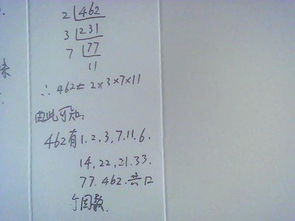 2 462
3 231
7 77
11
∴ 462 = 2×3×7×11
由此可知,
462有1.2.3.7.11.6.
14.22.21.33.
77.462.共12
个因数.